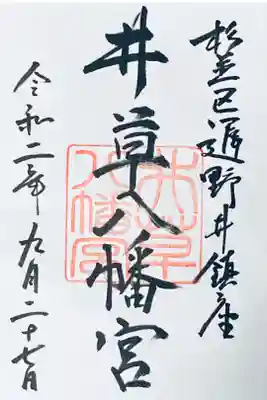 杉並区遅野井鎮座
井草八幡宮
令和二年九月二十七日
井草八幡宮